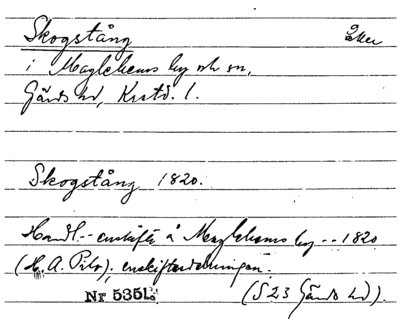 Skogstång åker
i Maglehems by och sn,
Gärds hd, Krstd. l.
Skogstång 1820.
Handl. - enskifte å Maglehems by - - 1820
(H. A. Pilo); enskiftesdelningen.
Nr 5351 (S 23 Gärds hd).